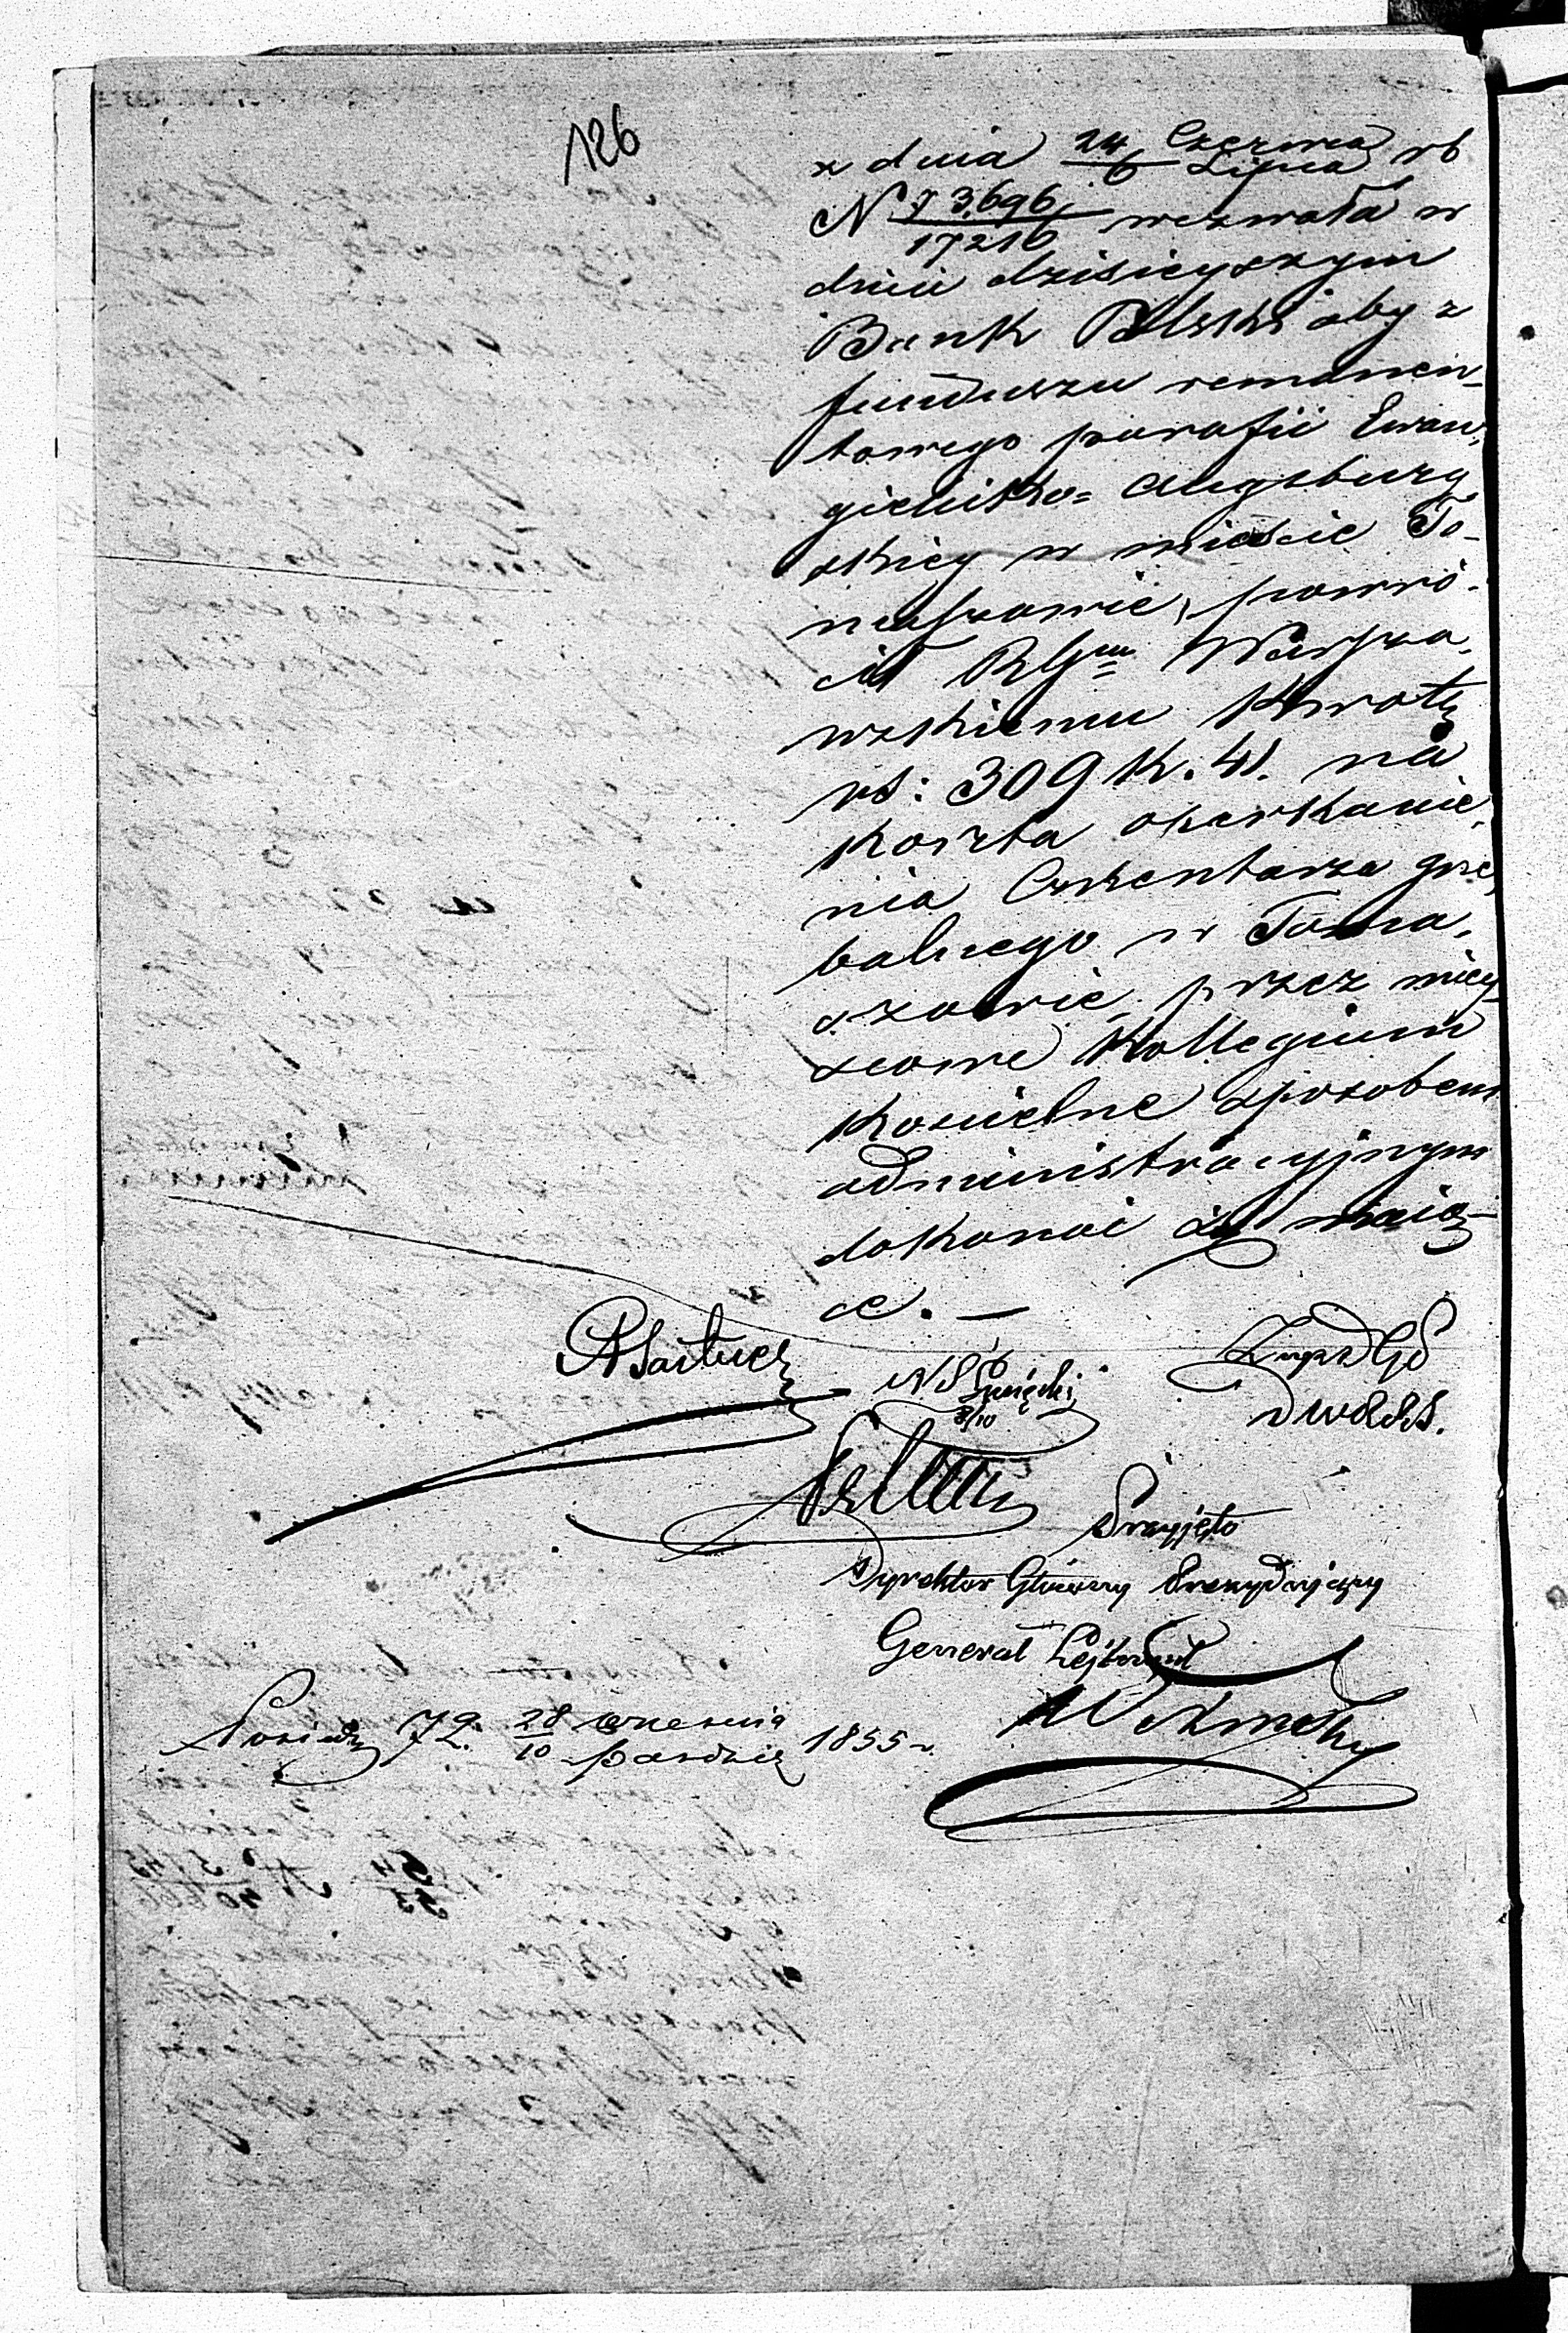 126
z dnia 24/6 Czerwca/Lipca rb
N 73,696/17216 wezwała w
dniu dzisieyszym
Bank Polski aby z
funduszu remanen-
towego parafii Ewan-
gielicko= Augsburg
skiey w mieście To-
maszowie, powró-
cił RGmu Warsza-
wskiemu kwotę
rs: 309 k. 41. na
koszta oparkanie-
nia Cmentarza grze-
balnego w Toma-
szowie, przez miey-
scowe Kollegium
Kościelne sposobem
administracyjnym
dokonać się maią-
ce. —
Przyjęto
Dyrektor Główny Prezydujący
Generał Lejtnant
Posiedz 72. 28/10 września/paździer 1855 r.